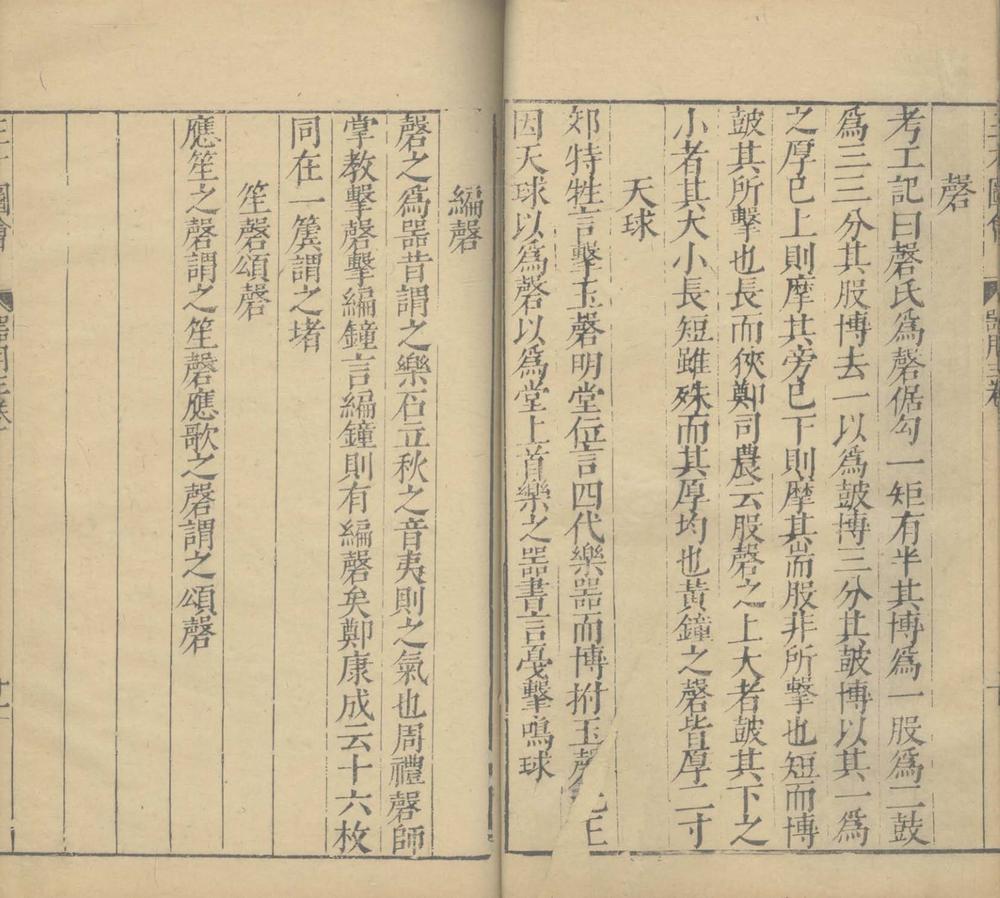 磬
考工記曰磬氏為磬倨勾一矩有半其博為一股為二鼓
為三三分其股博去一以為鼓博三分其鼓博以其一為
之厚巳上則摩其旁巳下則摩其耑股非所擊也短而博
鼓其所擊也長而狹鄭司農云股磬之上大者鼓其下之
小者其大小長短雖殊而其厚均也黃鐘之磬皆厚二寸
天球
郊特牲言擊玉磬明堂位言四代樂器而博拊玉磬
因天球以為磬以為堂上首樂之器書言戞擊鳴球
編磬
磬之為器昔謂之樂石立秋之音夷則之氣也周禮磬師
掌教擊磬擊編鐘言編鐘則有編磬矣鄭康成云十六枚
同在一簨謂之堵
笙磬頌磬
應笙之磬謂之笙磬應歌之磬謂之頌磬
圖會